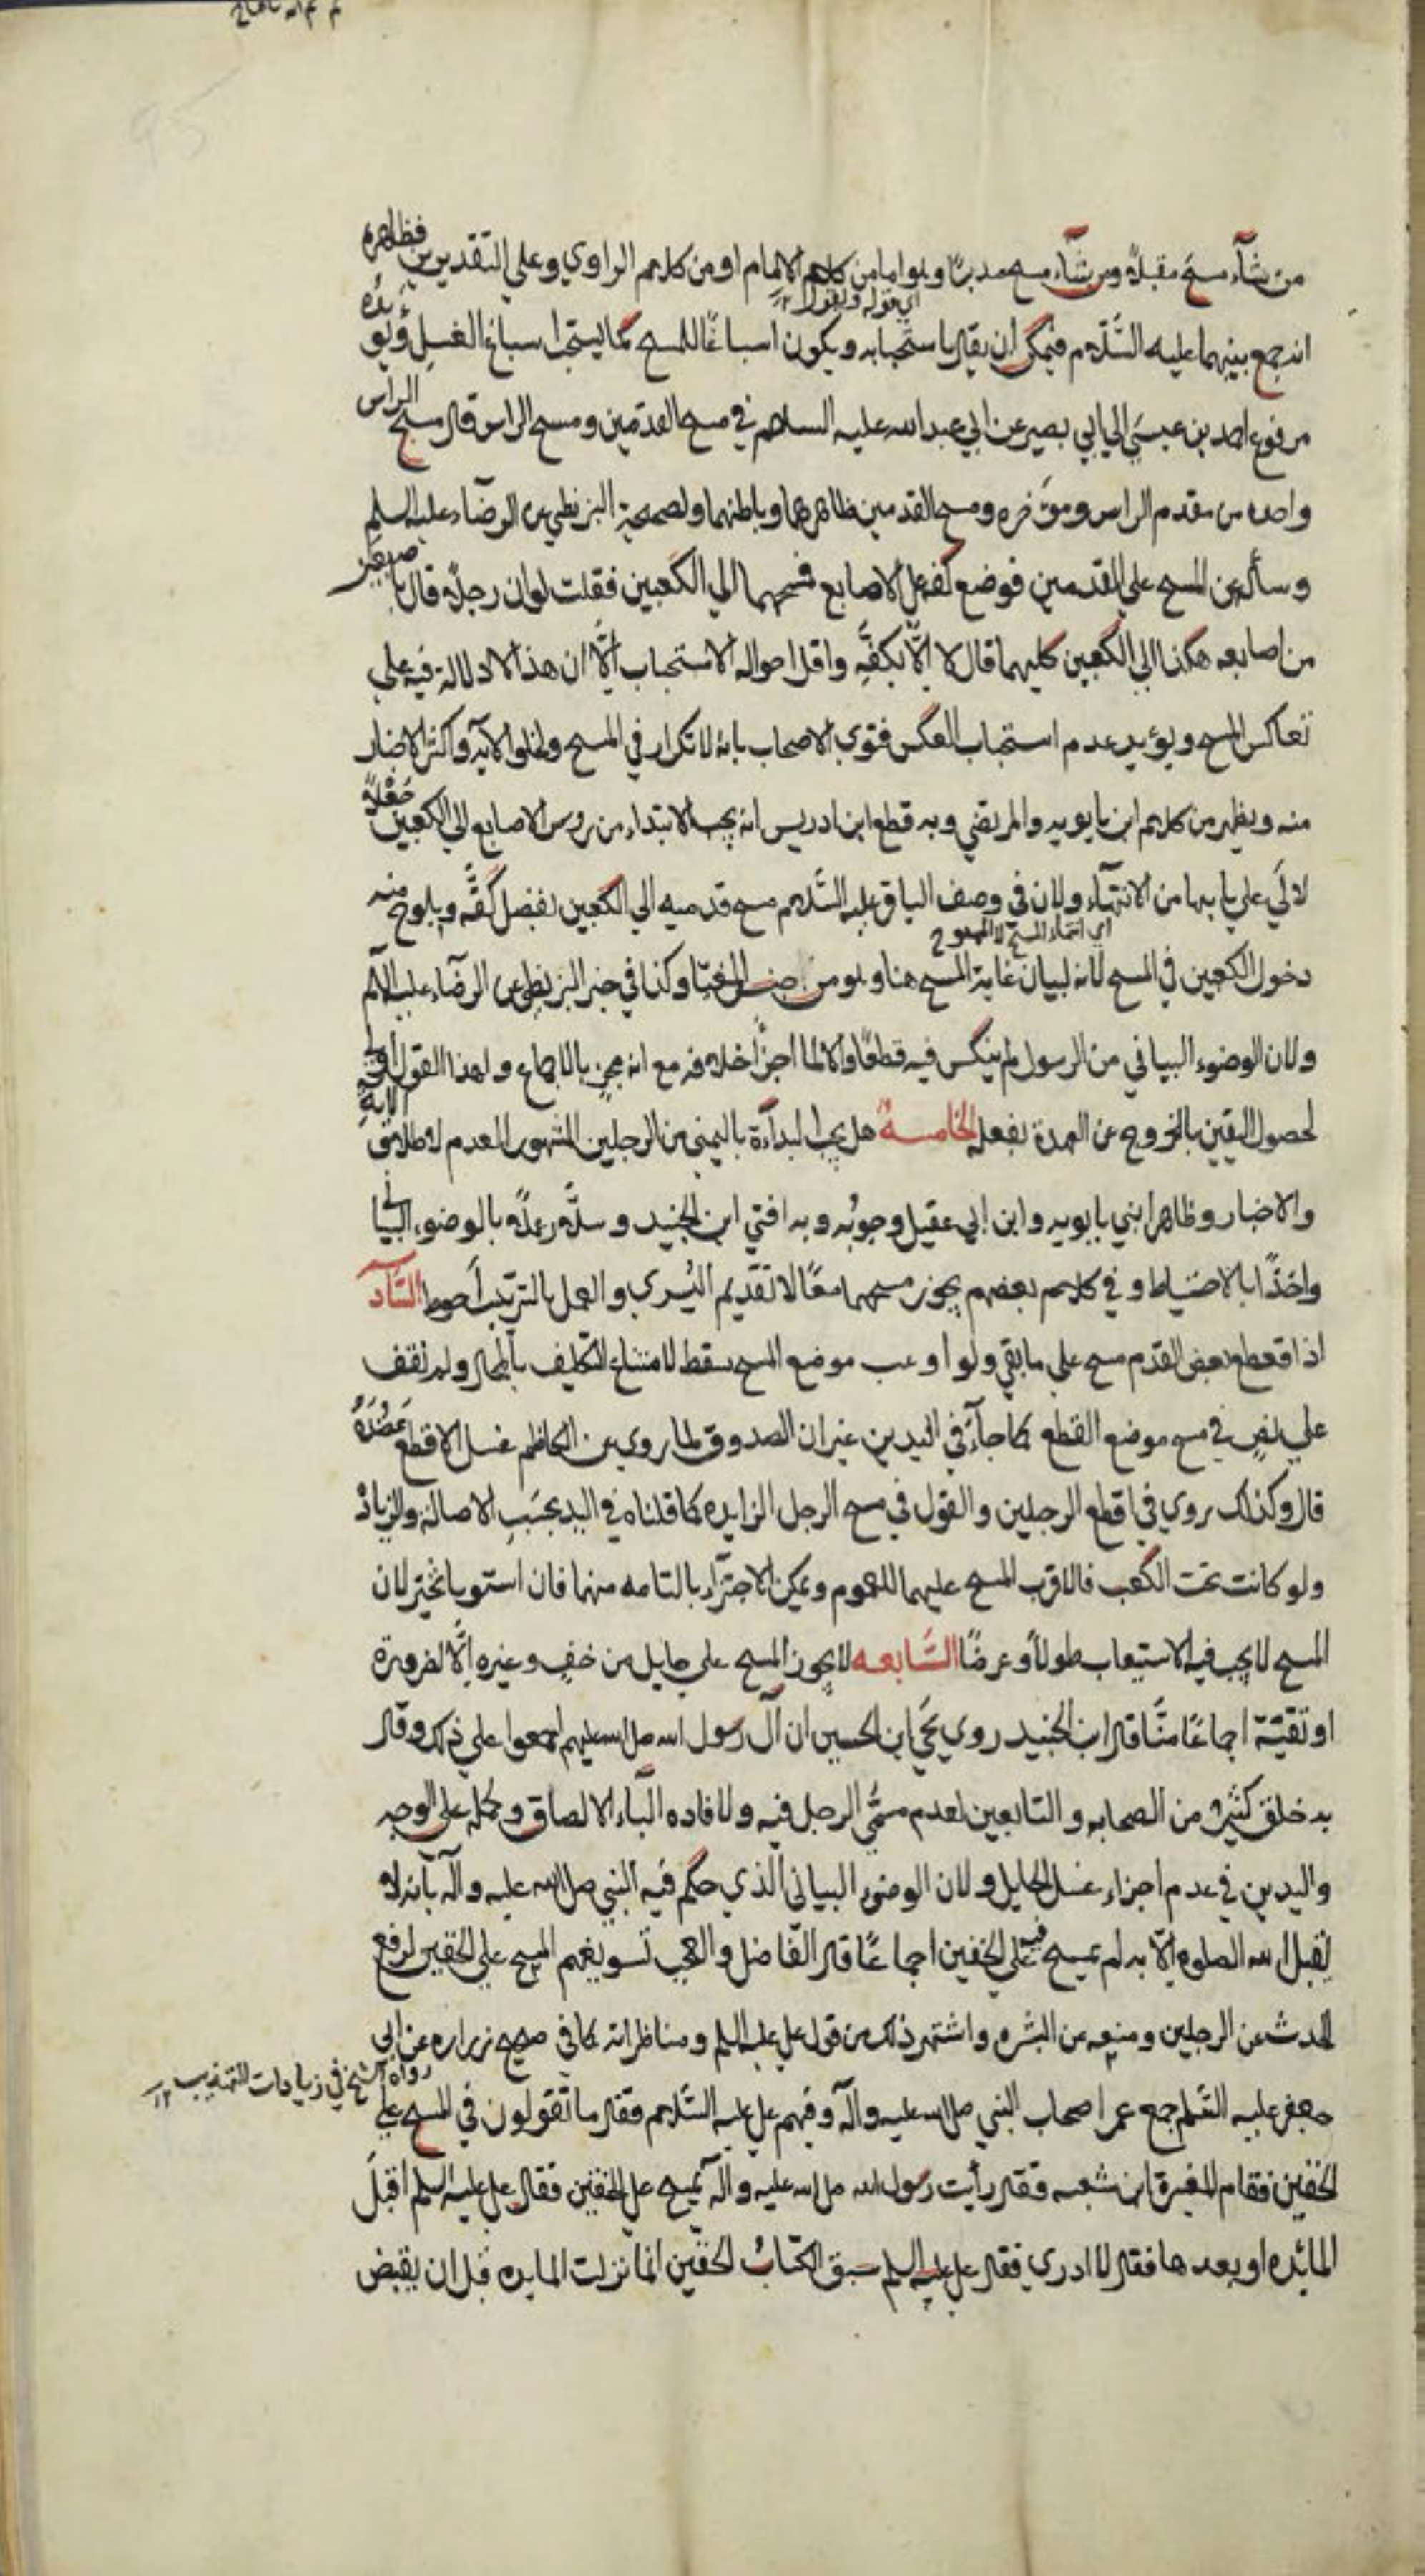 من شآء مسح مقبلاً ومن شآء مسح مدبرًا وهو اما من كلام الامام او من كلام الراوي وعلي التقديرين فظاهره
اي قوله ويقول ١٢
انه جمع بينهما عليه السّلام فيمكن ان يقال باستحبابه ويكون اسباغًا للمسح كما يستحب اسباغ الغسل ويؤيده
مرفوع احمد بن عيسي الي ابي بصير عن ابي عبد الله عليه السلام في مسح القدمين ومسح الراس قال مسح الراس
واحده من مقدم الراس وموَخره ومسح القدمين ظاهرهما وباطنهما ولصحيحة البزنطي عن الرضاء عليه السلم
وسأله عن المسح علي القدمين فوضع كفه علي الاصابع فمسحهما الي الكعبين فقلت لو ان رجلاً قال باصبعين
من اصابعه هكذا الي الكعبين كليهما قال لا الّا بكفّه واقل احواله الاستحباب الّا ان هذا لا دلالة فيه علي
تعاكس المسح ويؤيد عدم استحباب العكس فتوي الاصحاب بانه لا تكرار في المسح ولخلو الآية واكثر الاخبار
منه ويظهر من كلام ابن بابويه والمرتضي وبه قطع ابن ادريس انه يجب الابتداء من روس الاصابع الي الكعبين جعلاً
لالي علي بابها من الانتهآء ولان في وصف الباقر عليه السّلام مسح قدميه الي الكعبين بفضل كفّه ويلوح منه
اي انتهاء المسح لا الممسوح
دخول الكعبين في المسح لانه لبيان غاية المسح هنا وهو من جنس المغيّا وكذا في خبر البزنطي عن الرضاء عليه السلم
ولان الوضوء البياني من الرسول لم ينكس فيه قطعًا والا لما اجزأ خلافه مع انه مجزٍ بالاجماع ولهذا القول اولي
لحصول اليقين بالخروج عن العهدة بفعله الخامسة هل يجب البدآءة باليمني من الرجلين المشهور العدم لاطلاق الاية
والاخبار وظاهر ابني بابويه وابن ابي عقيل وجوبُه وبه افتي ابن الجنيد وسلّار عملاً بالوضوء البياني
واخذًا بالاحتياط وفي كلام بعضهم يجوز مسحهما معًا لا تقديم اليُسري والعمل بالترتيب احوط السّاد
اذا قطع بعض القدم مسح علي ما بقي ولو اوعب موضع المسح سقط لامتناع التكليف بالمحال ولم نقف
علي نصٍ في مسح موضع القطع كما جآء في اليدين غير ان الصدوق لما روي عن الكاظم غسل الاقطع عضده
قال وكذلك روي في اقطع الرجلين والقول في مسح الرجل الزايده كما قلناه في اليد بحسَبِ الاصالة والزيادة
ولو كانت تحت الكعب فالاقرب المسح عليهما للعموم ويمكن الاجتزاء بالتامه منهما فان استويا تخير لان
المسح لا يجب فيه الاستيعاب طولاً وعرضًا السّابعه لا يجوز المسح علي حايل من خفٍ وغيره الّا لضرورة
او تقيّة اجماعًا منّا قال ابن الجنيد روي يحيَي ابن الحسين ان آل رسول الله صلي الله عليهم اجمعوا علي ذلك وقال
به خلق كثيرٌ من الصحابه والتابعين لعدم مسمّي الرجل فيه ولافاده البآء الالصاق وحمله علي الوجه
واليدين في عدم اجزاء غسل الحايل ولان الوضوء البياني الّذي حكم فيه النبي صلي الله عليه وآله بآنه لا
يقبل الله الصلوه الّا به لم يمسح فيه علي الخفين اجماعًا قال الفاضل والعجب تسويغهم المسح علي الخفين لرفع
الحدث عن الرجلين ومنعه عن البشره واشتهر ذلك من قول علي عليه السلم ومناظراته كما في صحيح زراره عن ابي
رواه الشيخ في زيادات التهذيب ١٢
جعفر عليه السّلم جمع عمر اصحاب النبي صلي الله عليه وآله وفيهم علي عليه السّلام فقال ما تقولون في المسح علي
الخفين فقام المغيرة ابن شعبه فقال رأيت رسول الله صلي الله عليه وآله يمسح علي الخفين فقال علي عليه السلم أقبلَ
المائده او بعدها فقال لا ادري فقال علي عليه السلم سبق الكتابُ الخفّين انما نزلت المايده قبل ان يقبض